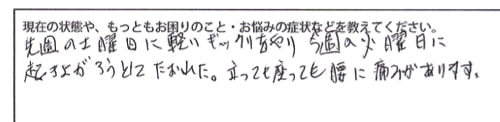 現在の状態や、もっともお困りのこと・お悩みの症状などを教えてください。
先週の土曜日に軽いギックリをやり 今週の火曜日に
起き上がろうとして たおれた。立っても座っても腰に痛みがあります。